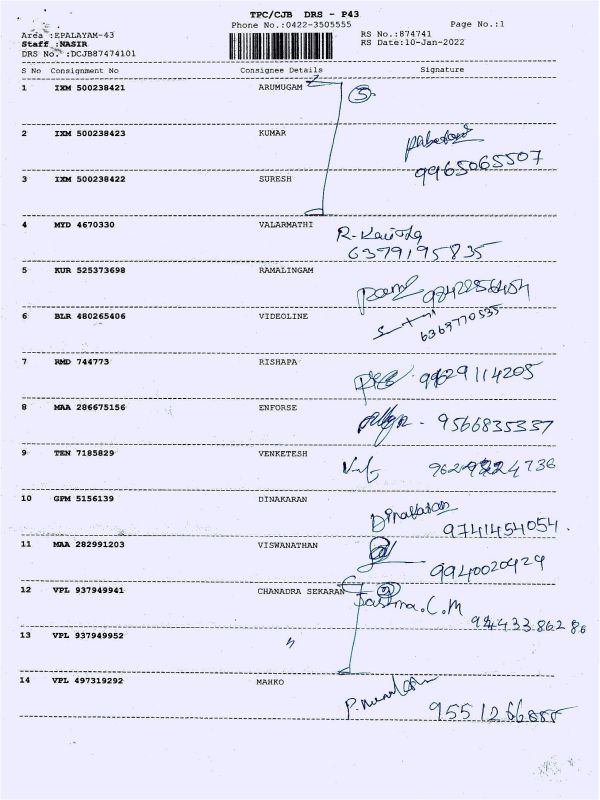 TPC/CJB DRS - P43
Phone No.:0422-3505555 Page No.:1
Area :EPALAYAM-43 RS No.:874741
Staff :NASIR RS Date:10-Jan-2022
DRS No. :DCJB87474101
S No Consignment No Consignee Details Signature
1 IXM 500238421 ARUMUGAM 3
2 IXM 500238423 KUMAR
9965065507
3 IXM 500238422 SURESH
4 MYD 4670330 VALARMATHI
6379195835
5 KUR 525373698 RAMALINGAM
6 BLR 480265406 VIDEOLINE
7 RMD 744773 RISHAPA
8 MAA 286675156 ENFORSE
9566835337
9 TEN 7185829 VENKETESH
10 GPM 5156139 DINAKARAN Dinakaran
9741454054.
11 MAA 282991203 VISWANATHAN
9940020429
12 VPL 937949941 CHANADRA SEKARAN 2
13 VPL 937949952 "
14 VPL 497319292 MAHKO